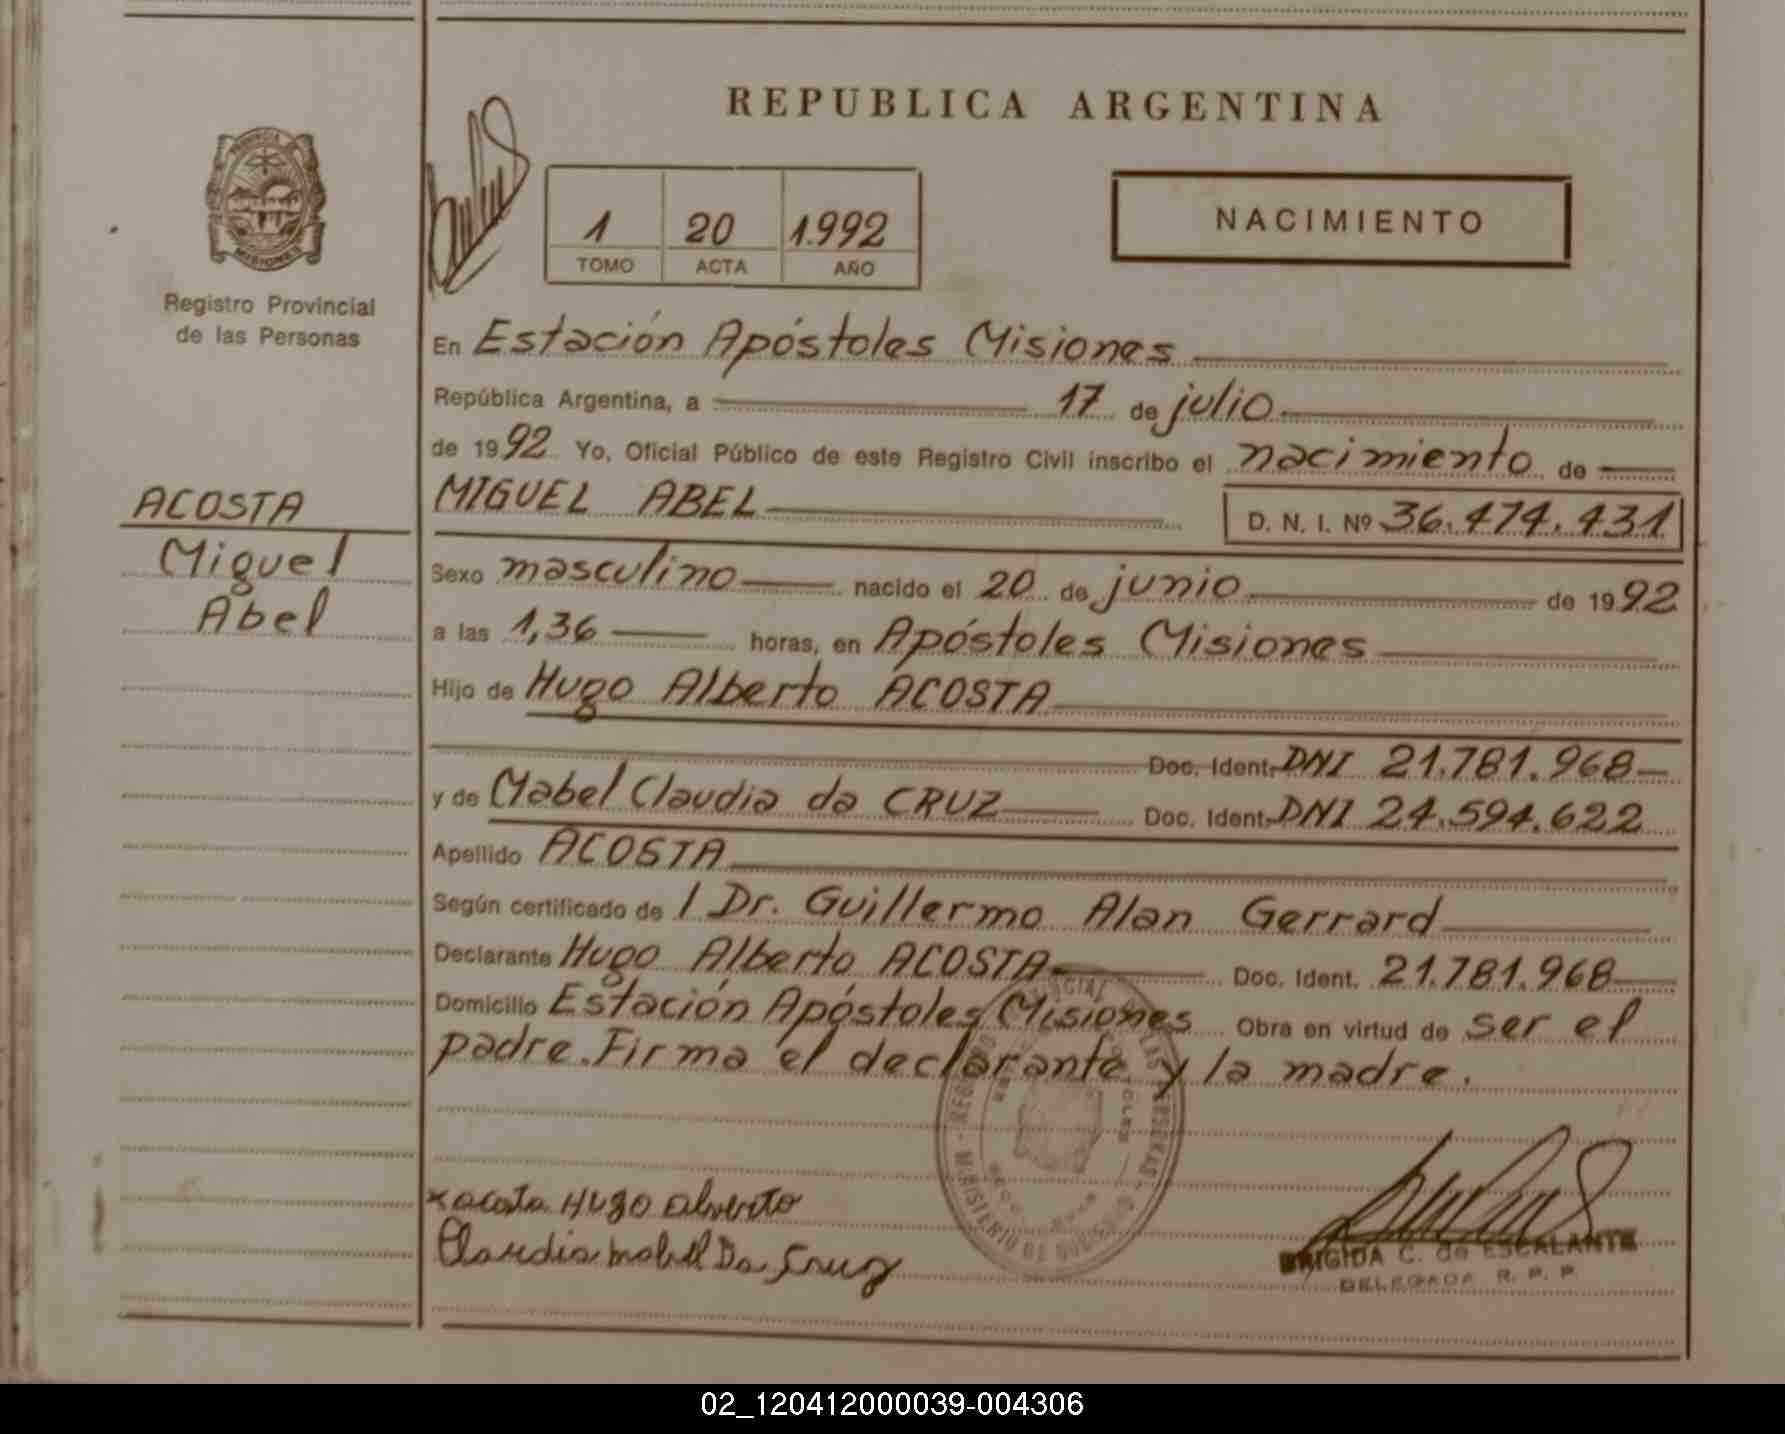 REPUBLICA ARGENTINA
PROVINCIA
MISIONES
Registro Provincial
de las Personas
1 20 1.992
TOMO ACTA AÑO
NACIMIENTO
En Estación Apóstoles Misiones
República Argentina, a 17 de julio
de 1992 Yo, Oficial Público de este Registro Civil inscribo el nacimiento de
MIGUEL ABEL D. N. I. Nº 36.474.431
ACOSTA
Miguel
Abel
Sexo masculino nacido el 20 de junio de 1992
a las 1,36 horas, en Apóstoles Misiones
Hijo de Hugo Alberto ACOSTA
Doc. Ident. DNI 21.781.968
y de Mabel Claudia da CRUZ Doc. Ident. DNI 24.594.622
Apellido ACOSTA
Según certificado de l Dr. Guillermo Alan Gerrard
Declarante Hugo Alberto ACOSTA Doc. Ident. 21.781.968
Domicilio Estación Apóstoles Misiones Obra en virtud de ser el
padre. Firma el declarante y la madre.
x acosta HUGO alverto
Claudia mabel Da Cruz
BRIGIDA C. de ESCALANTE
DELEGADA R. P. P.
02_120412000039-004306